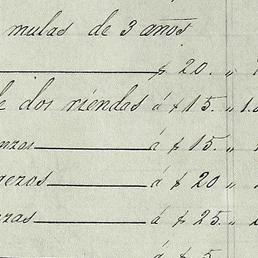 mulas de 3 años
$ 20. "
de dos riendas á $ 15. " 1.
nzas á $ 15. "
rezos á $ 20 "
zas á $ 25. "
á $ 5